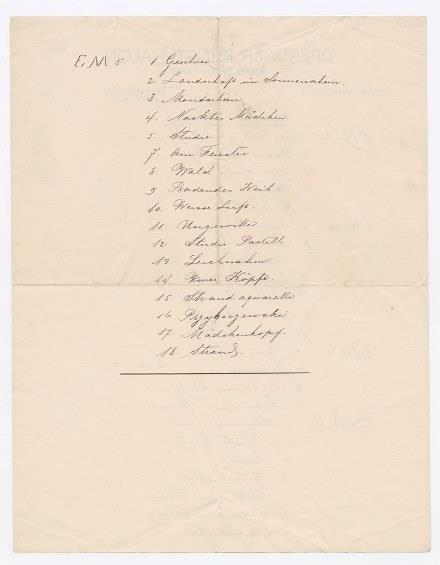 E. M 5
1 Geschrei
2. Landschaft im Sonnenschein.
3. Mondschein
4. Nacktes Mädchen
5 Studie
7. Am Fenster
8. Wald
9. Badendes Weib.
10. Weisse Luft.
11. Ungewitter
12. Studie Pastell
13
14 Zwei Köpfe.
15. Strand aquarelle
16 Przybyszewski.
17. Mädchenkopf.
18. Strand.